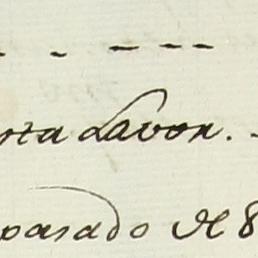 sta Lavor.
pasado de 8